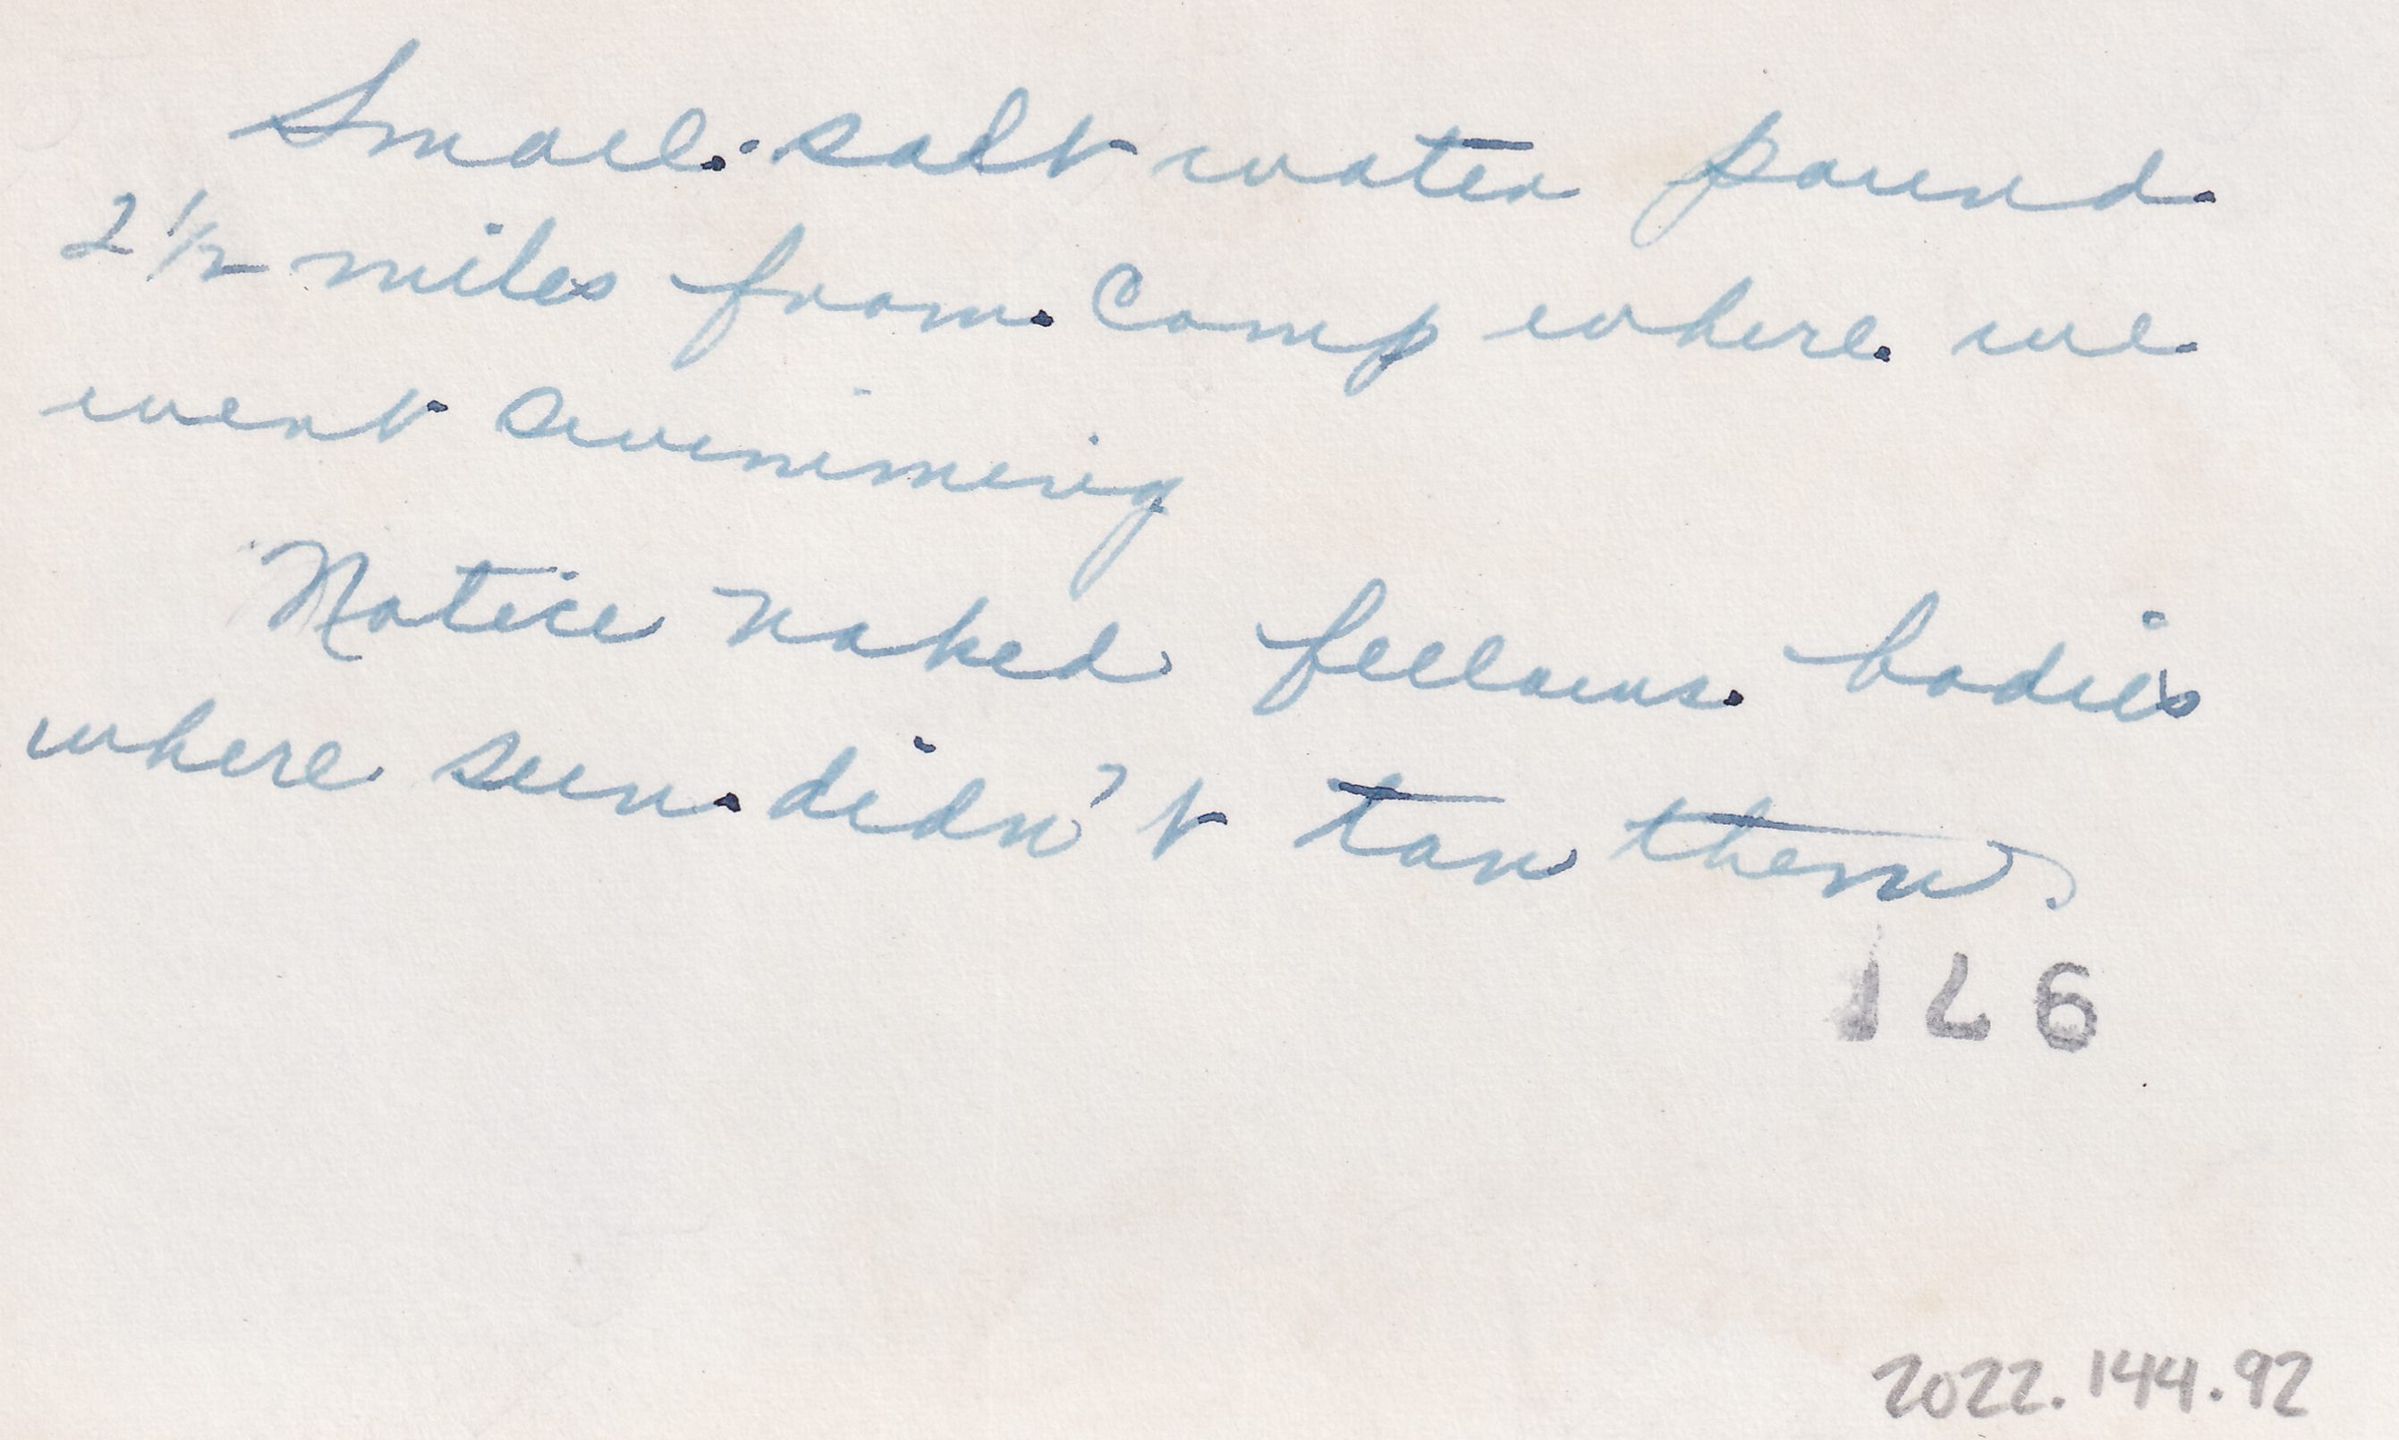 Small salt water pound
2 1/2 miles from Camp where we
went swimming
Notice naked fellows bodies
where sun didn't tan them.
126
2022.144.92